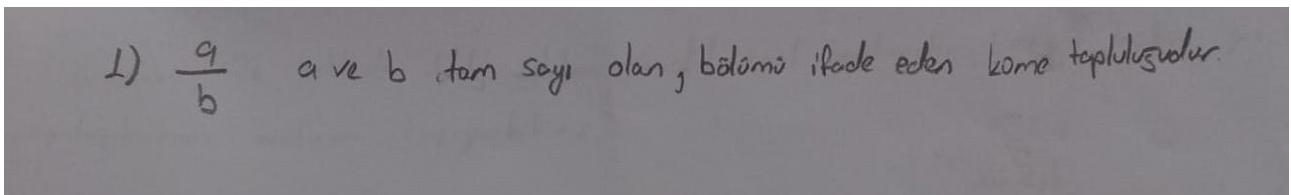 1) a/b a ve b tam sayı olan, bölümü ifade eden küme topluluğudur.